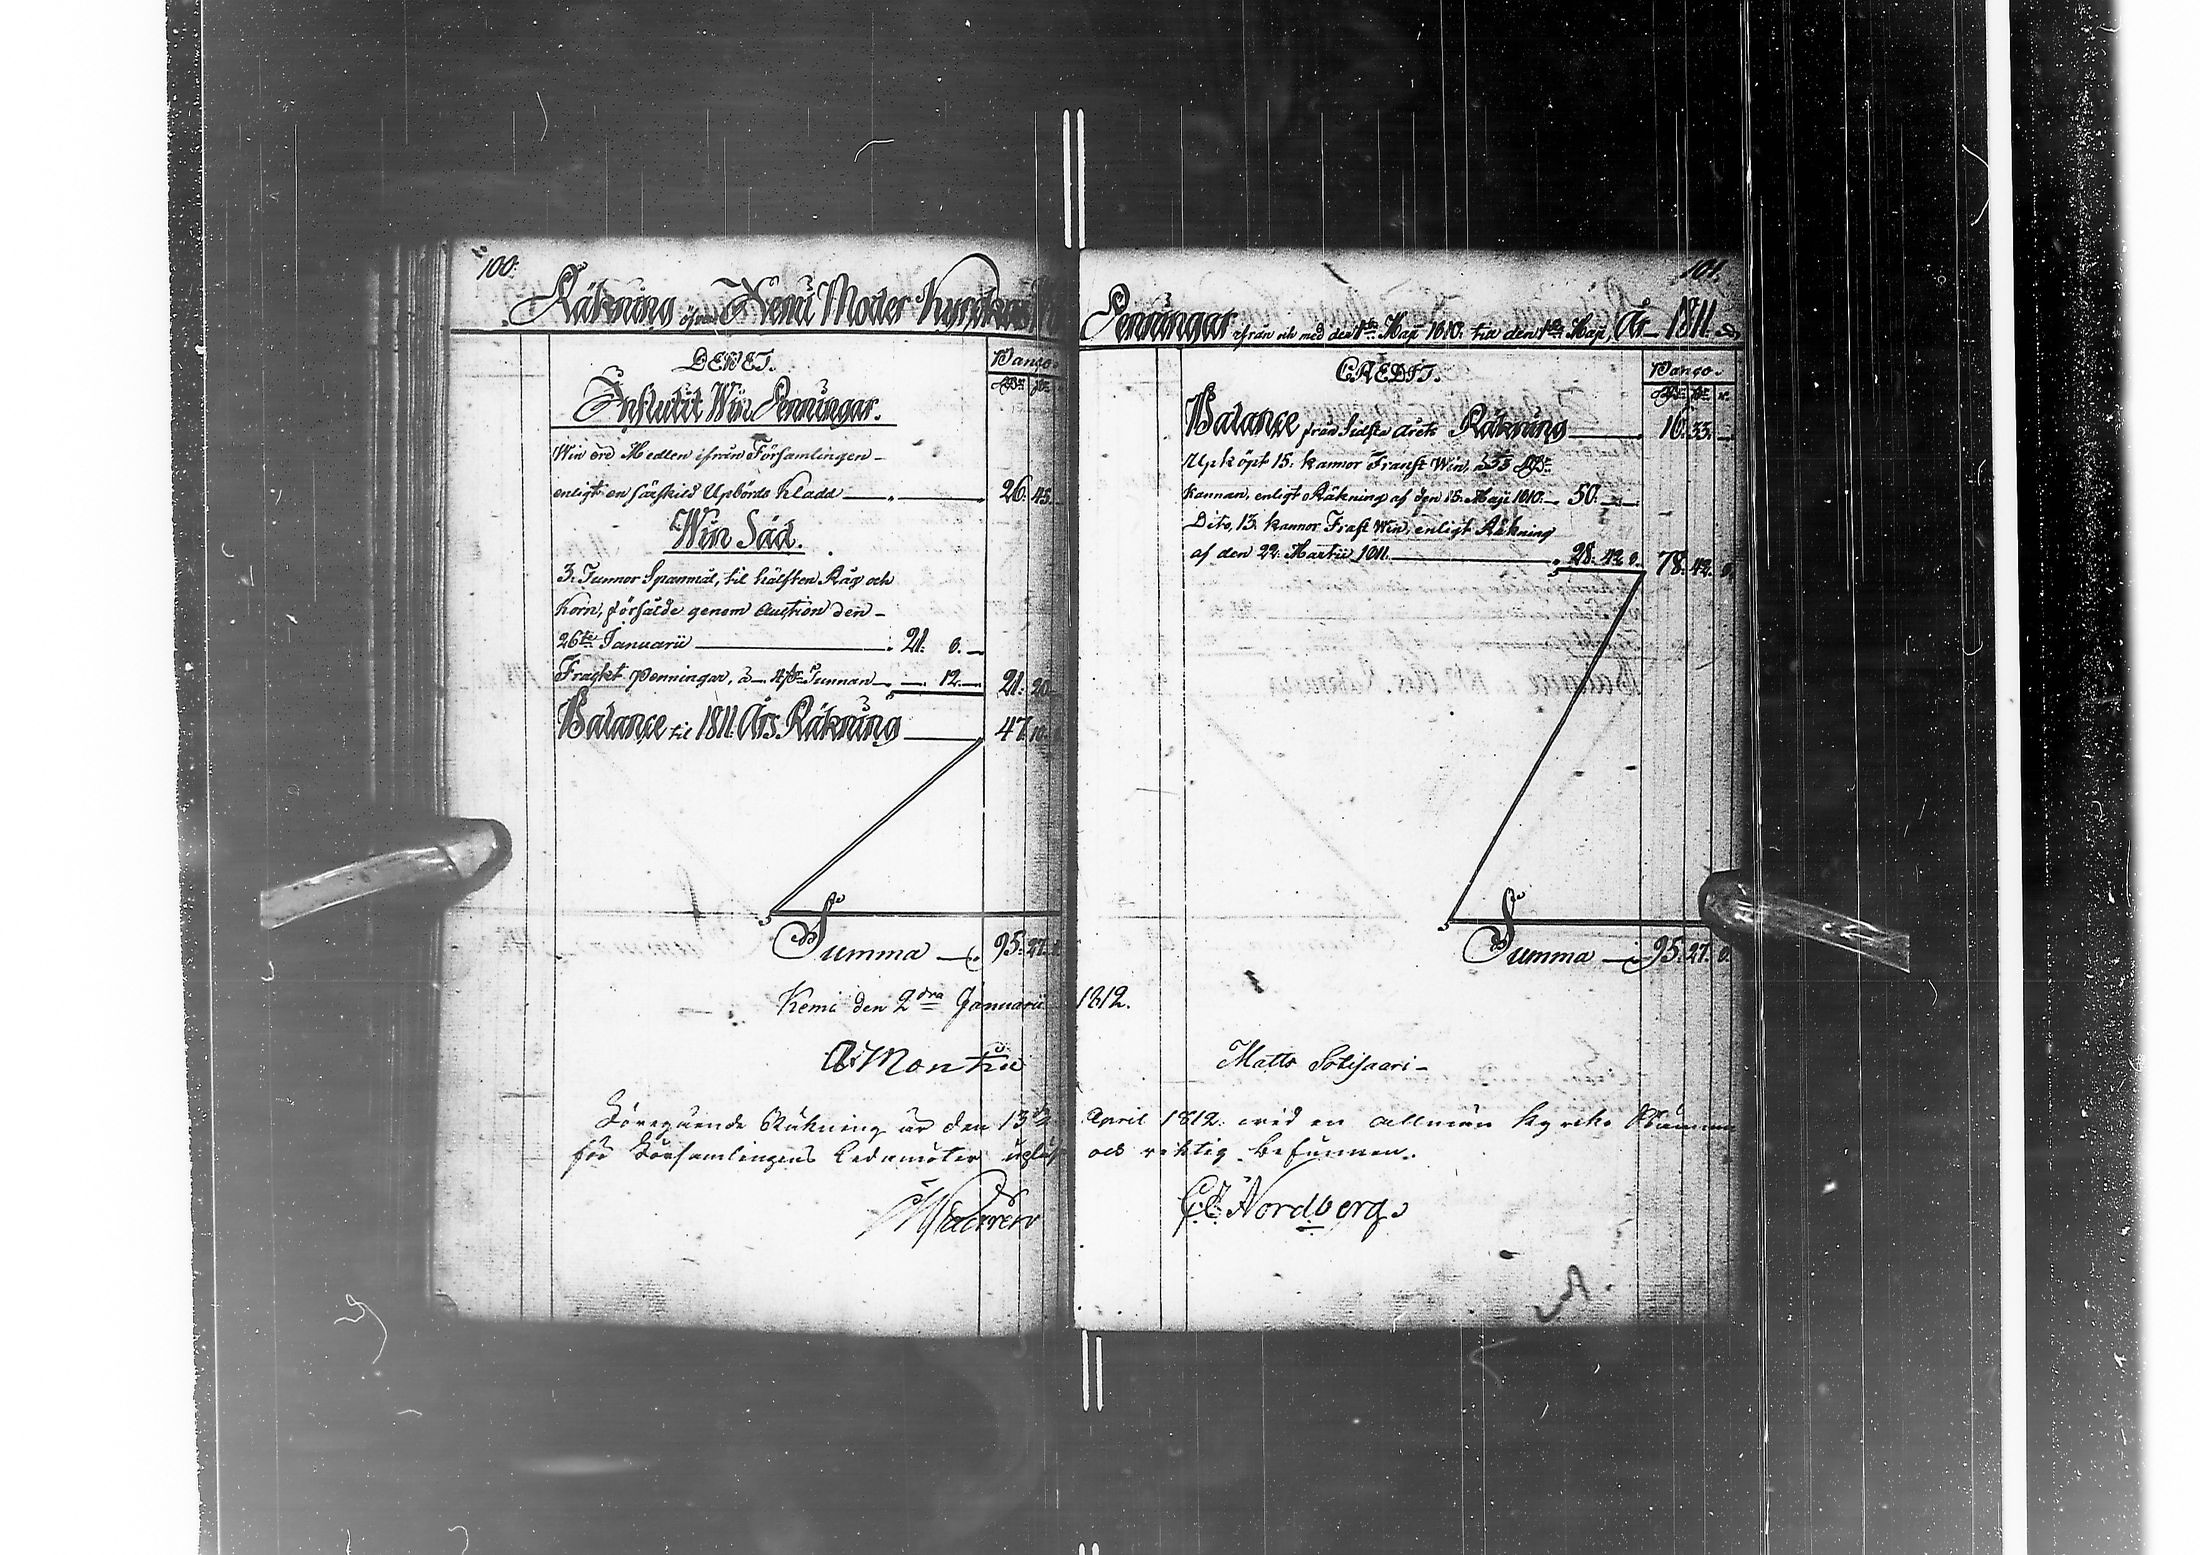 100.
Räkning öfver Kemi Moder Kyrckas
DEBET.
Banco.
Influtit Win Penningar.
Win öre Medlen ifrån Församlingen
enligt en särskild Upbörds Kladd — 26. 45.
Win Säd.
3. Tunnor Spanmål, til hälften Råg och
Korn, försålde genom Auction den
26te Januarii — 21. 8. —
Frackt Penningar, à 4 s. Tunnan — 12. — 21. 20
Balance til 1811. Års Räkning — 47. 10.
Summa — 95. 27.
Kemi den 2dra Januarii
A. Montin
Föregående Räkning är den 13de
för Församlingens Ledamöter upläst
101.
Penningar ifrån och med den 1sta Maji 1810. til den 1sta Maji, År 1811.
CREDIT.
Banco.
Balance från Sidsta årets Räkning — 16. 33. —
Upköpt 15. kannor Franst Win, à
kannan, enligt Räkning af den 15. Maji 1810. — 50. —
Dito, 13. kannor Franst Win, enligt Räkning
af den 22. Martii 1811. — 28. 42. 8. 78. 42. 8.
Summa — 95. 27. 8.
1812.
Matts Sotisaari
April 1812. wid en allmän Kyrcko Stämma
och riktig befunnen.
Nordberg